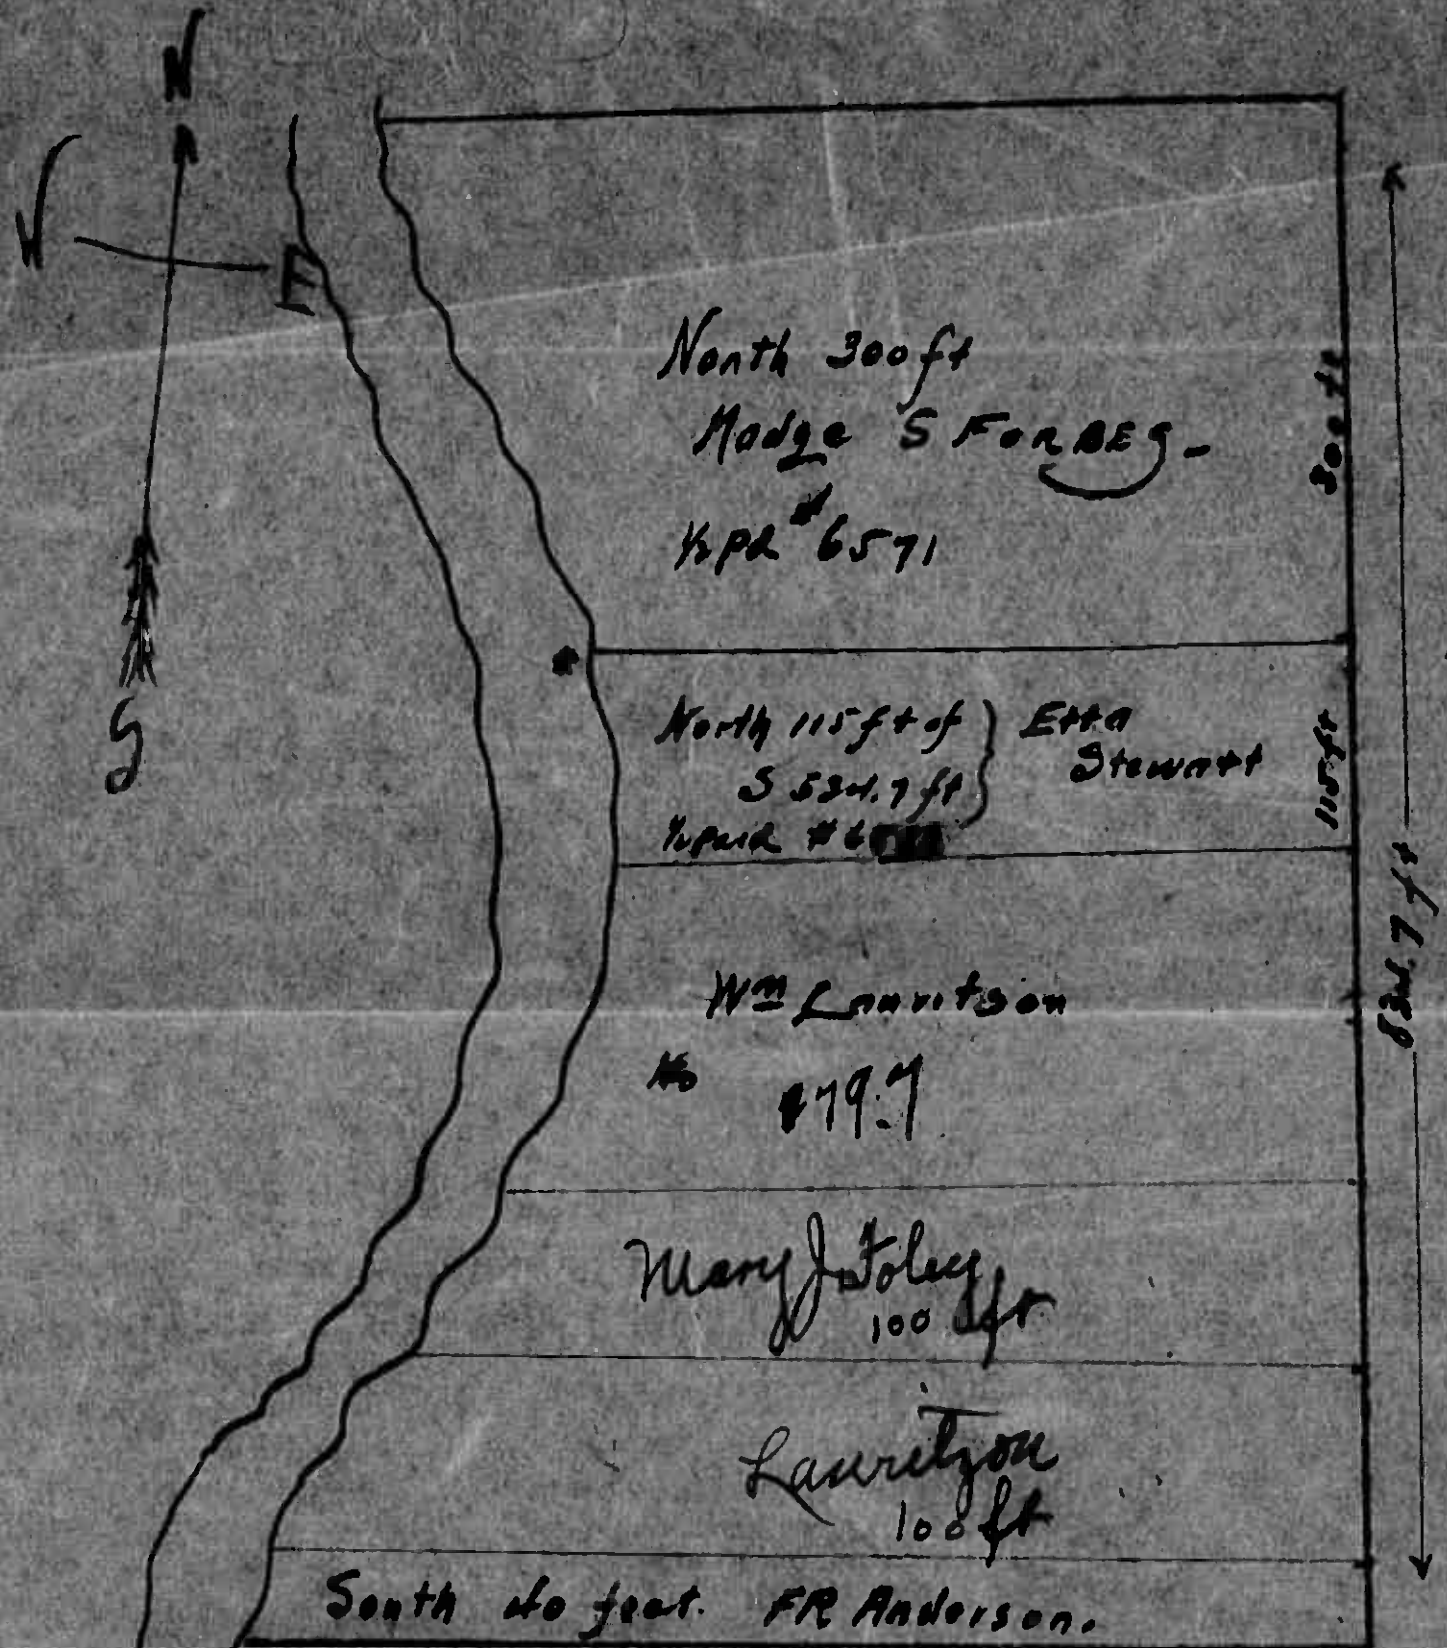 N
W
E
S
North 300 ft
Madge S Forbes-
½ pd #6571
300 ft
North 115 ft of
S 534.7 ft
½ paid #6
Etta
Stewart
115 ft
Wm Lauritson
179.7
834.7 ft
Mary J. Foley
100 ft
Lauritzon
100 ft
South 40 feet. FR Anderson.